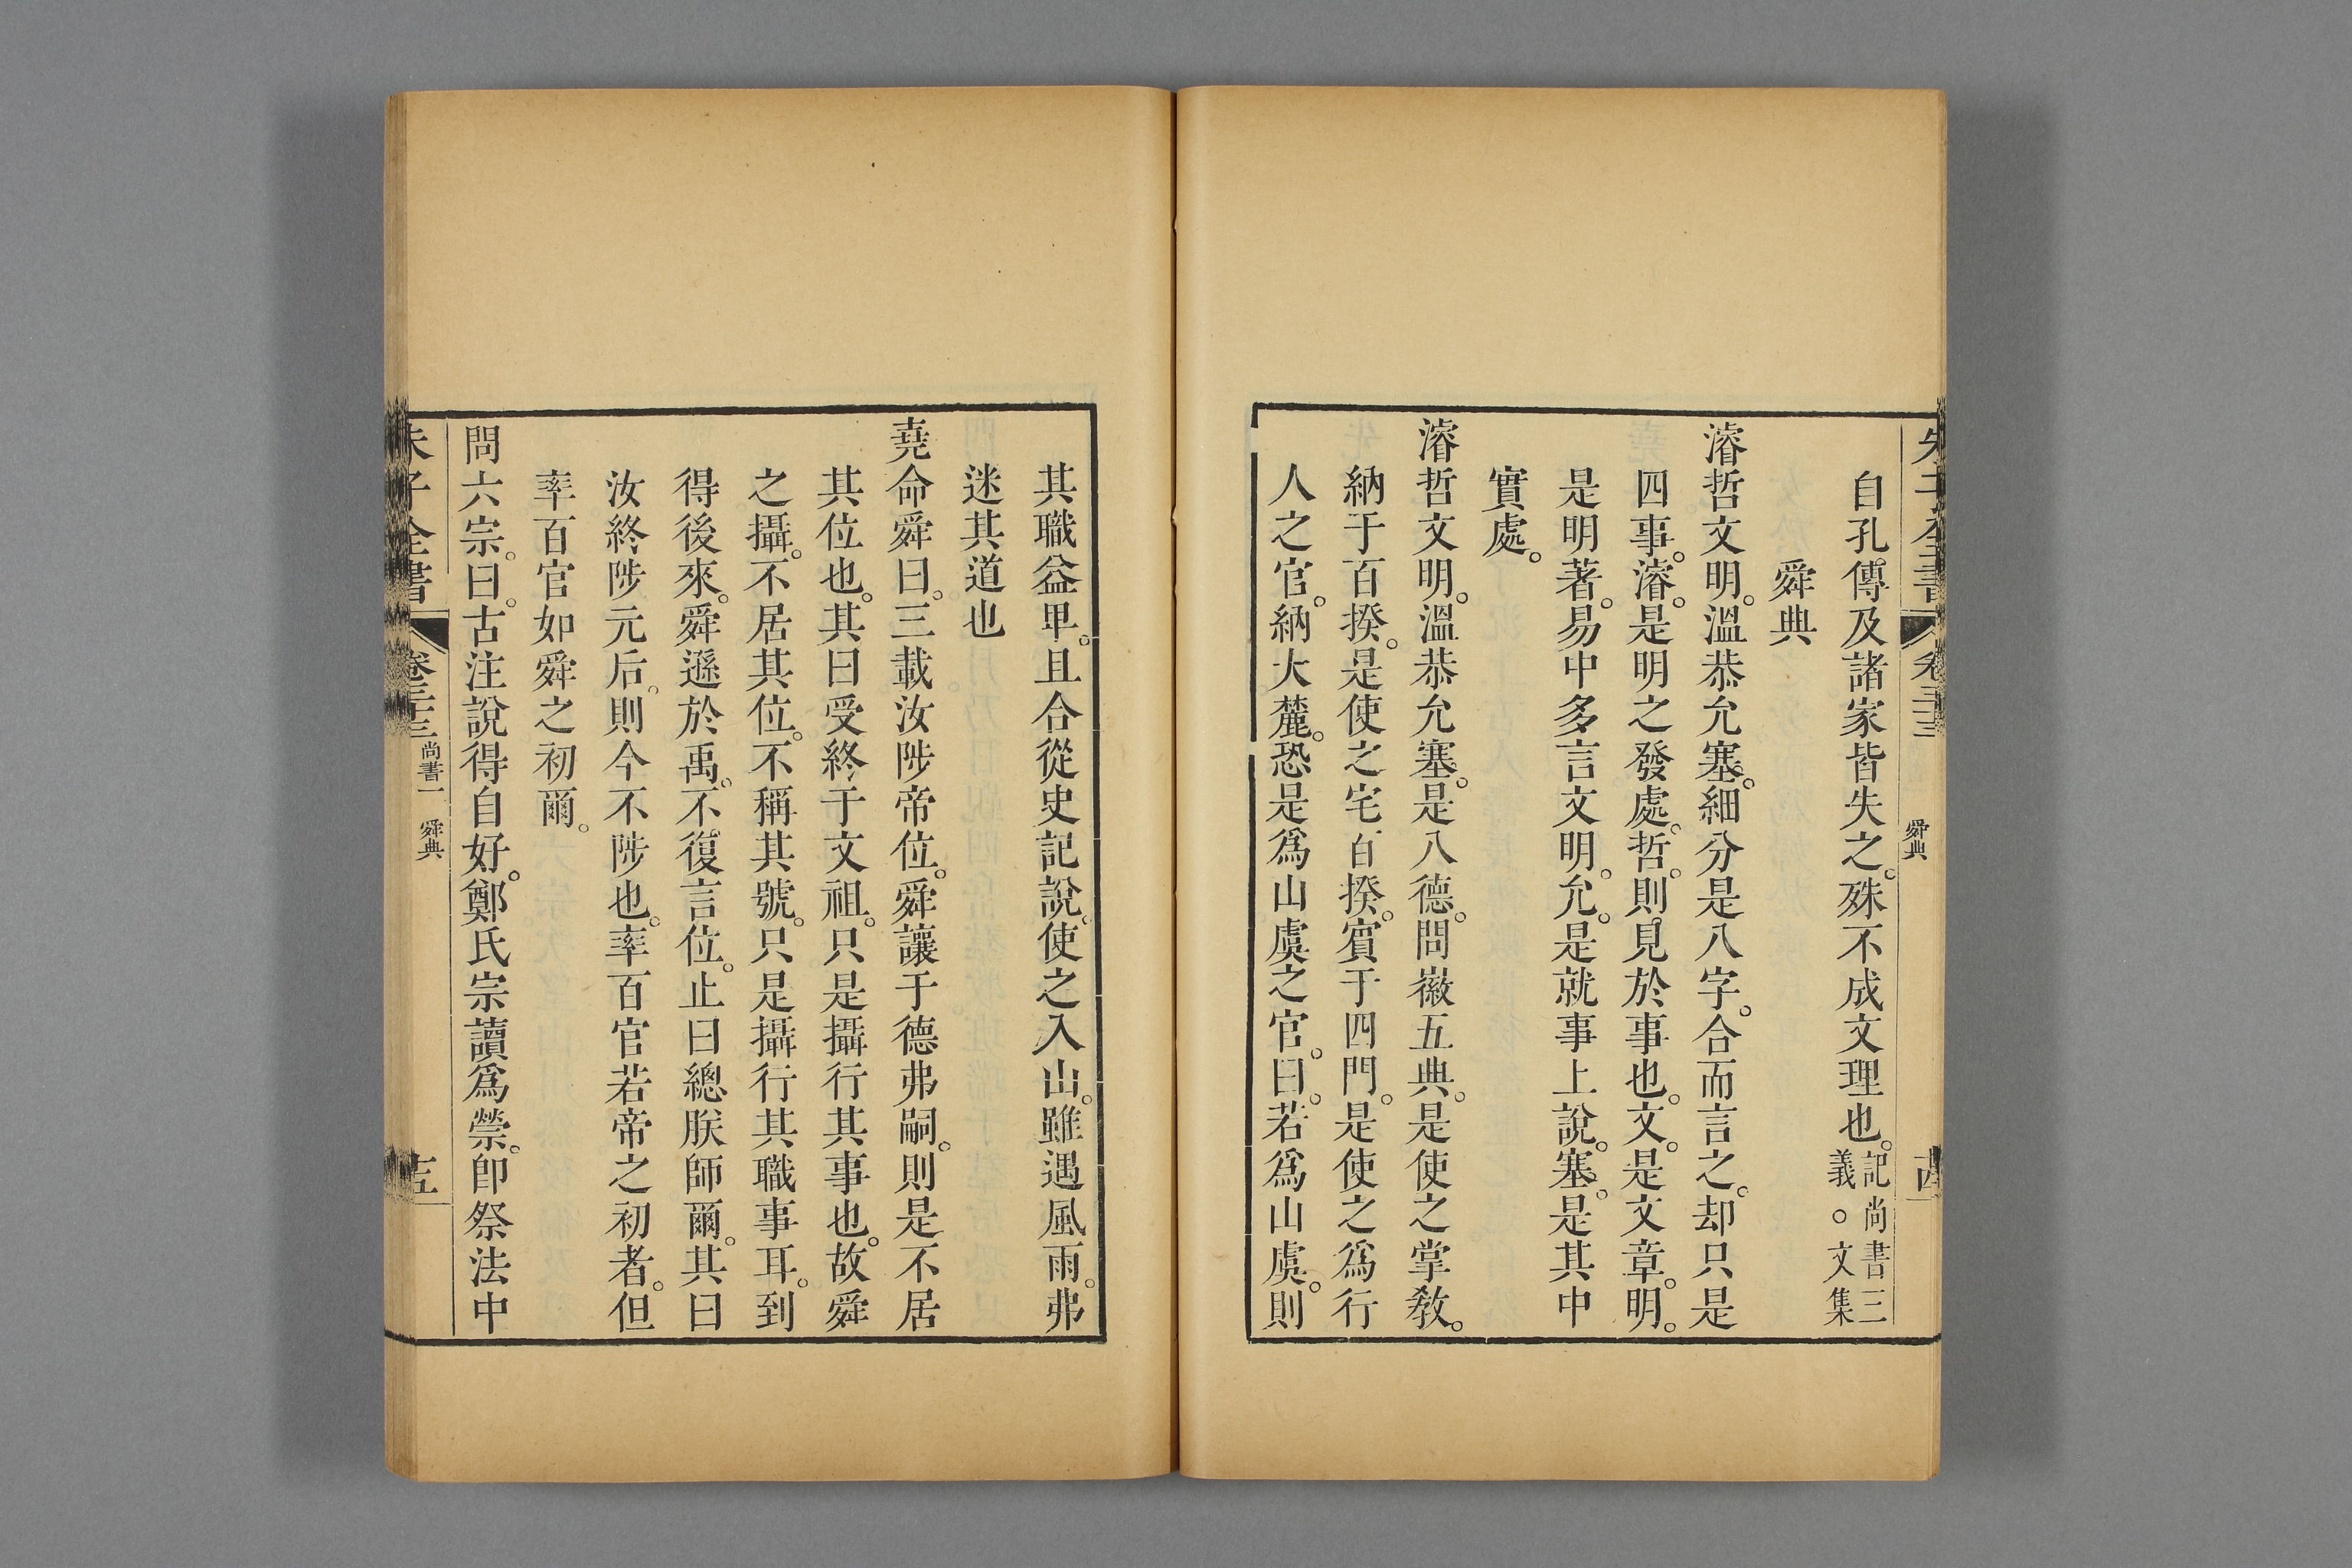 自孔傳及諸家皆失之。殊不成文理也。記尚書三義。○文集
舜典
濬哲文明。溫恭允塞。細分是八字。合而言之。却只是
四事。濬。是明之發處。哲。則見於事也。文。是文章。明。
是明著。易中多言文明。允。是就事上說。塞。是其中
實處。
濬哲文明。溫恭允塞。是八德。問徽五典。是使之掌敎。
納于百揆。是使之宅百揆。賓于四門。是使之爲行
人之官。納大麓。恐是爲山虞之官。曰。若爲山虞。則
其職益卑。且合從史記說。使之入山。雖遇風雨。弗
迷其道也
堯命舜曰。三載汝陟帝位。舜讓于德弗嗣。則是不居
其位也。其曰受終于文祖。只是攝行其事也。故舜
之攝。不居其位。不稱其號。只是攝行其職事耳。到
得後來。舜遜於禹。不復言位。止曰總朕師爾。其曰
汝終陟元后。則今不陟也。率百官若帝之初者。但
率百官如舜之初爾。
問六宗。曰。古注說得自好。鄭氏宗讀爲禜。卽祭法中
朱子全書 卷三十三 尚書一 舜典 十五